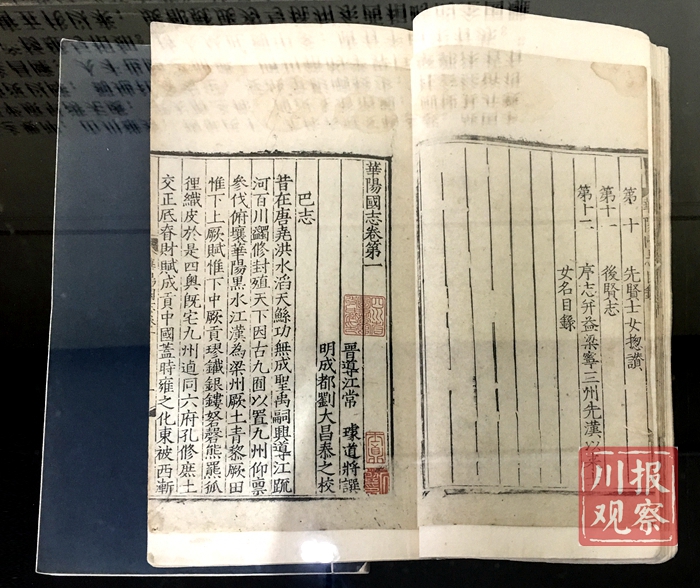 第十 先賢士女揔讚
第十一 後賢志
第十二 序志并益梁寧三州先漢以
女名目錄
華陽國志卷第一
晉導江常 璩道將譔
明成都劉大昌泰之校
巴志
昔在唐堯洪水滔天鯀功無成聖禹嗣興導江疏
河百川蠲修封殖天下因古九囿以置九州仰禀
參伐俯壤華陽黑水江漢為梁州厥土青黎厥田
惟下上厥賦惟下中厥貢璆鐵銀鏤砮磬熊羆狐
狸織皮於是四奧旣宅九州逌同六府孔修庶土
交正厎春財賦成貢中國蓋時雍之化東被西漸
川报
观察